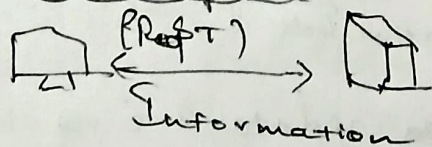 (ReST)
Information